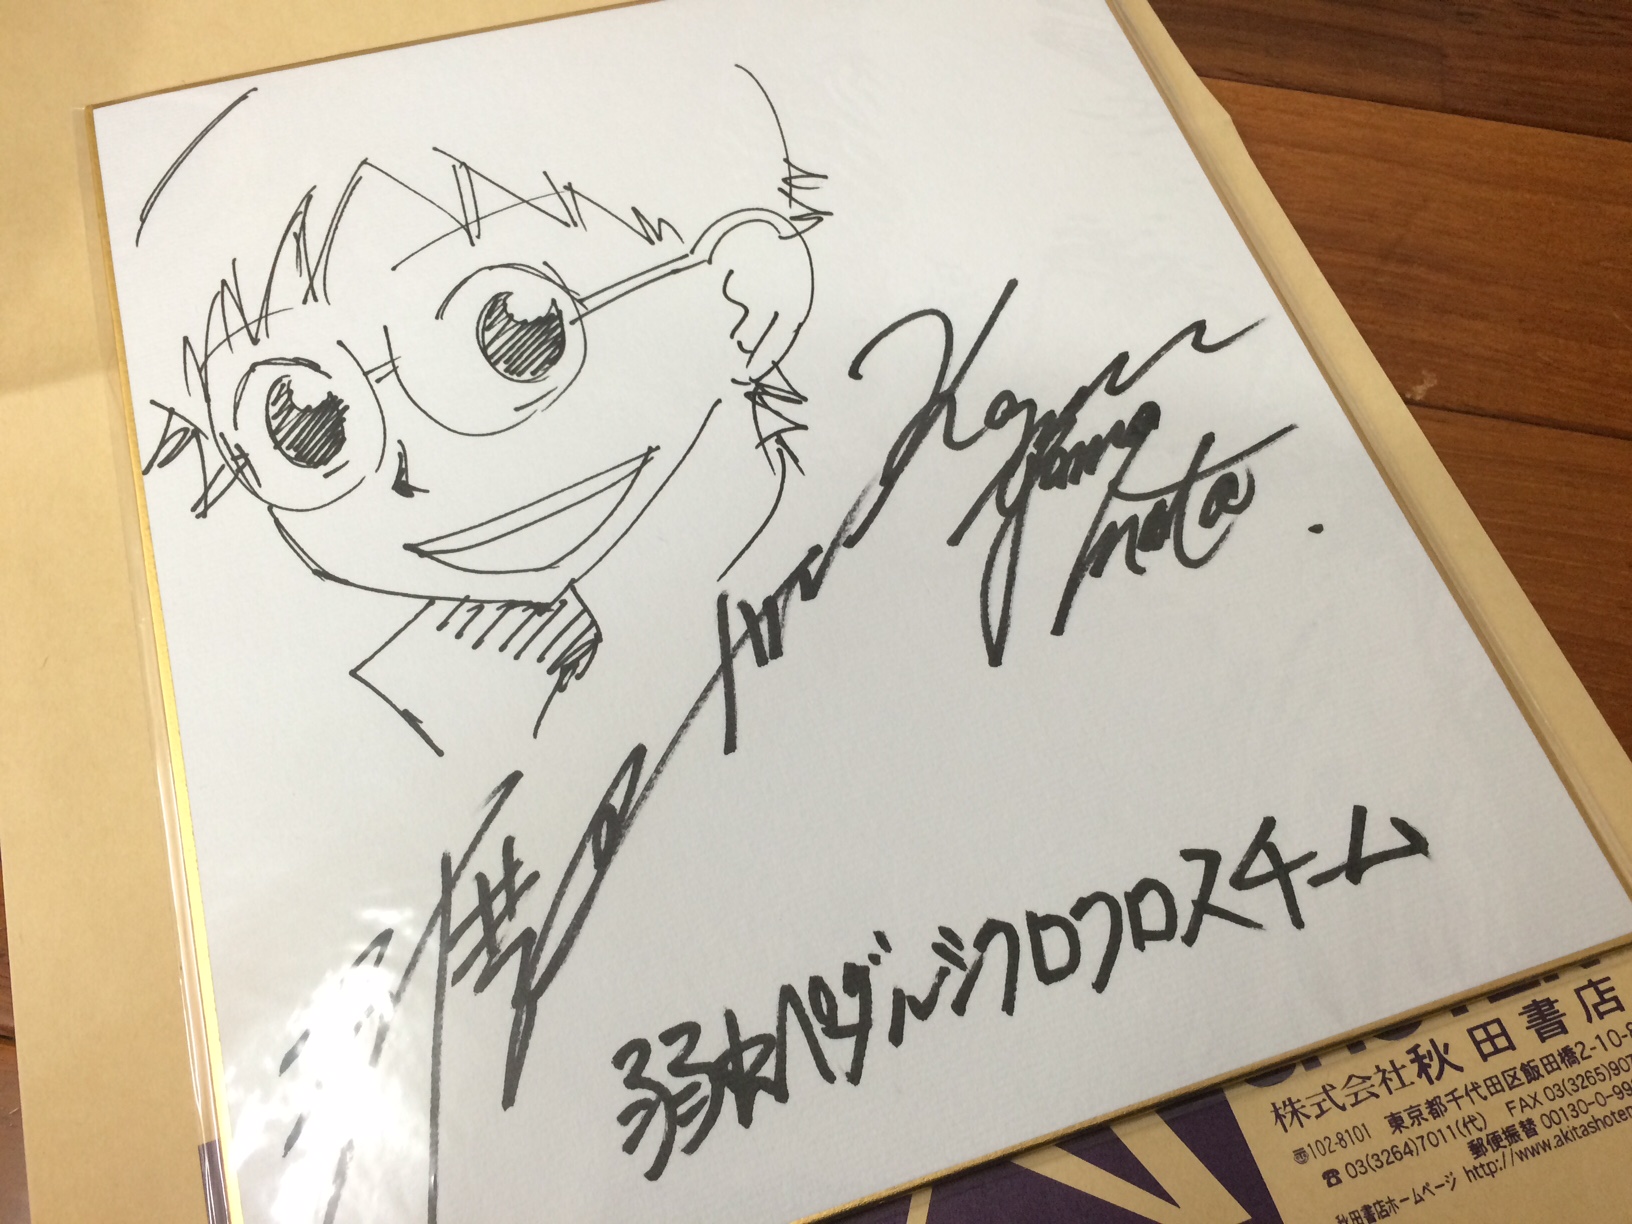 Kazu
yama
mota
弱虫ペダルシクロクロスチーム
株式会社秋田書店
〒102-8101 東京都千代田区飯田橋2-10-8
☎03(3264)7011(代) FAX 03(3265)907
郵便振替 00130-0-99
秋田書店ホームページ http://www.akitashoten